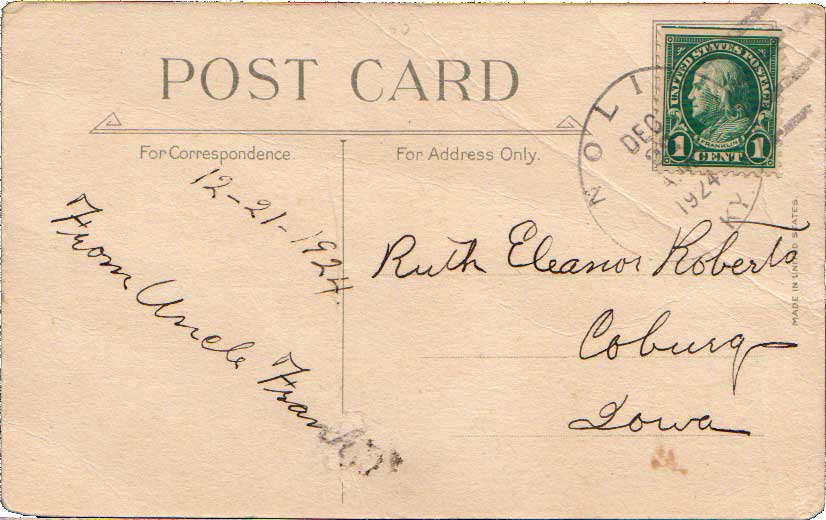 POST CARD
For Correspondence.
For Address Only.
UNITED STATES POSTAGE
FRANKLIN
1 CENT 1
NOLI
DEC
1924
KY
12-21-1924.
From Uncle Frank
Ruth Eleanor Roberts
Coburg
Iowa
MADE IN UNITED STATES.